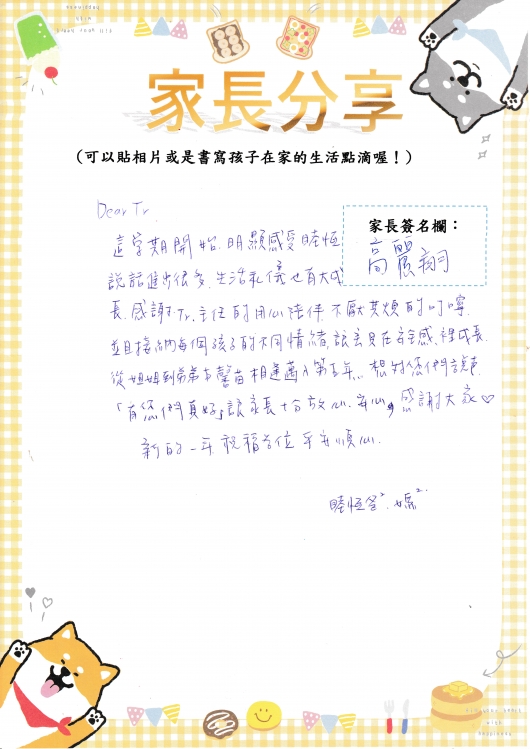 家長分享
(可以貼相片或是書寫孩子在家的生活點滴喔!)
家長簽名欄:
高麗翔
Dear Tr.
這學期開始,明顯感受睦恒
說話進步很多,生活禮儀也有大成
長,感謝Tr.主任的用心陪伴,不厭其煩的叮嚀
並且接納每個孩子的不同情緒,讓寶貝在安全感裡成長
從姐姐到弟弟與馨苗相逢邁入第五年,想對您們說聲
「有您們真好」讓家長十分放心、安心,感謝大家♡
新的一年祝福各位平安順心.
睦恒爸²、媽².